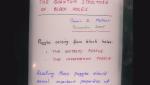 THE QUANTUM STRUCTURE
OF BLACK HOLES
Puzzles arising from black holes:
THE ENTROPY PUZZLE
THE INFORMATION PUZZLE
Resolving these puzzles should
reveal important properties of